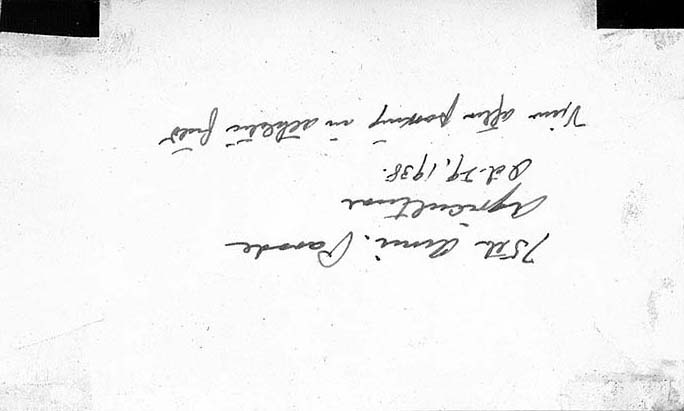 75th Anni. Parade
Agriculture
Oct. 29, 1938.
View after parking in athletic field